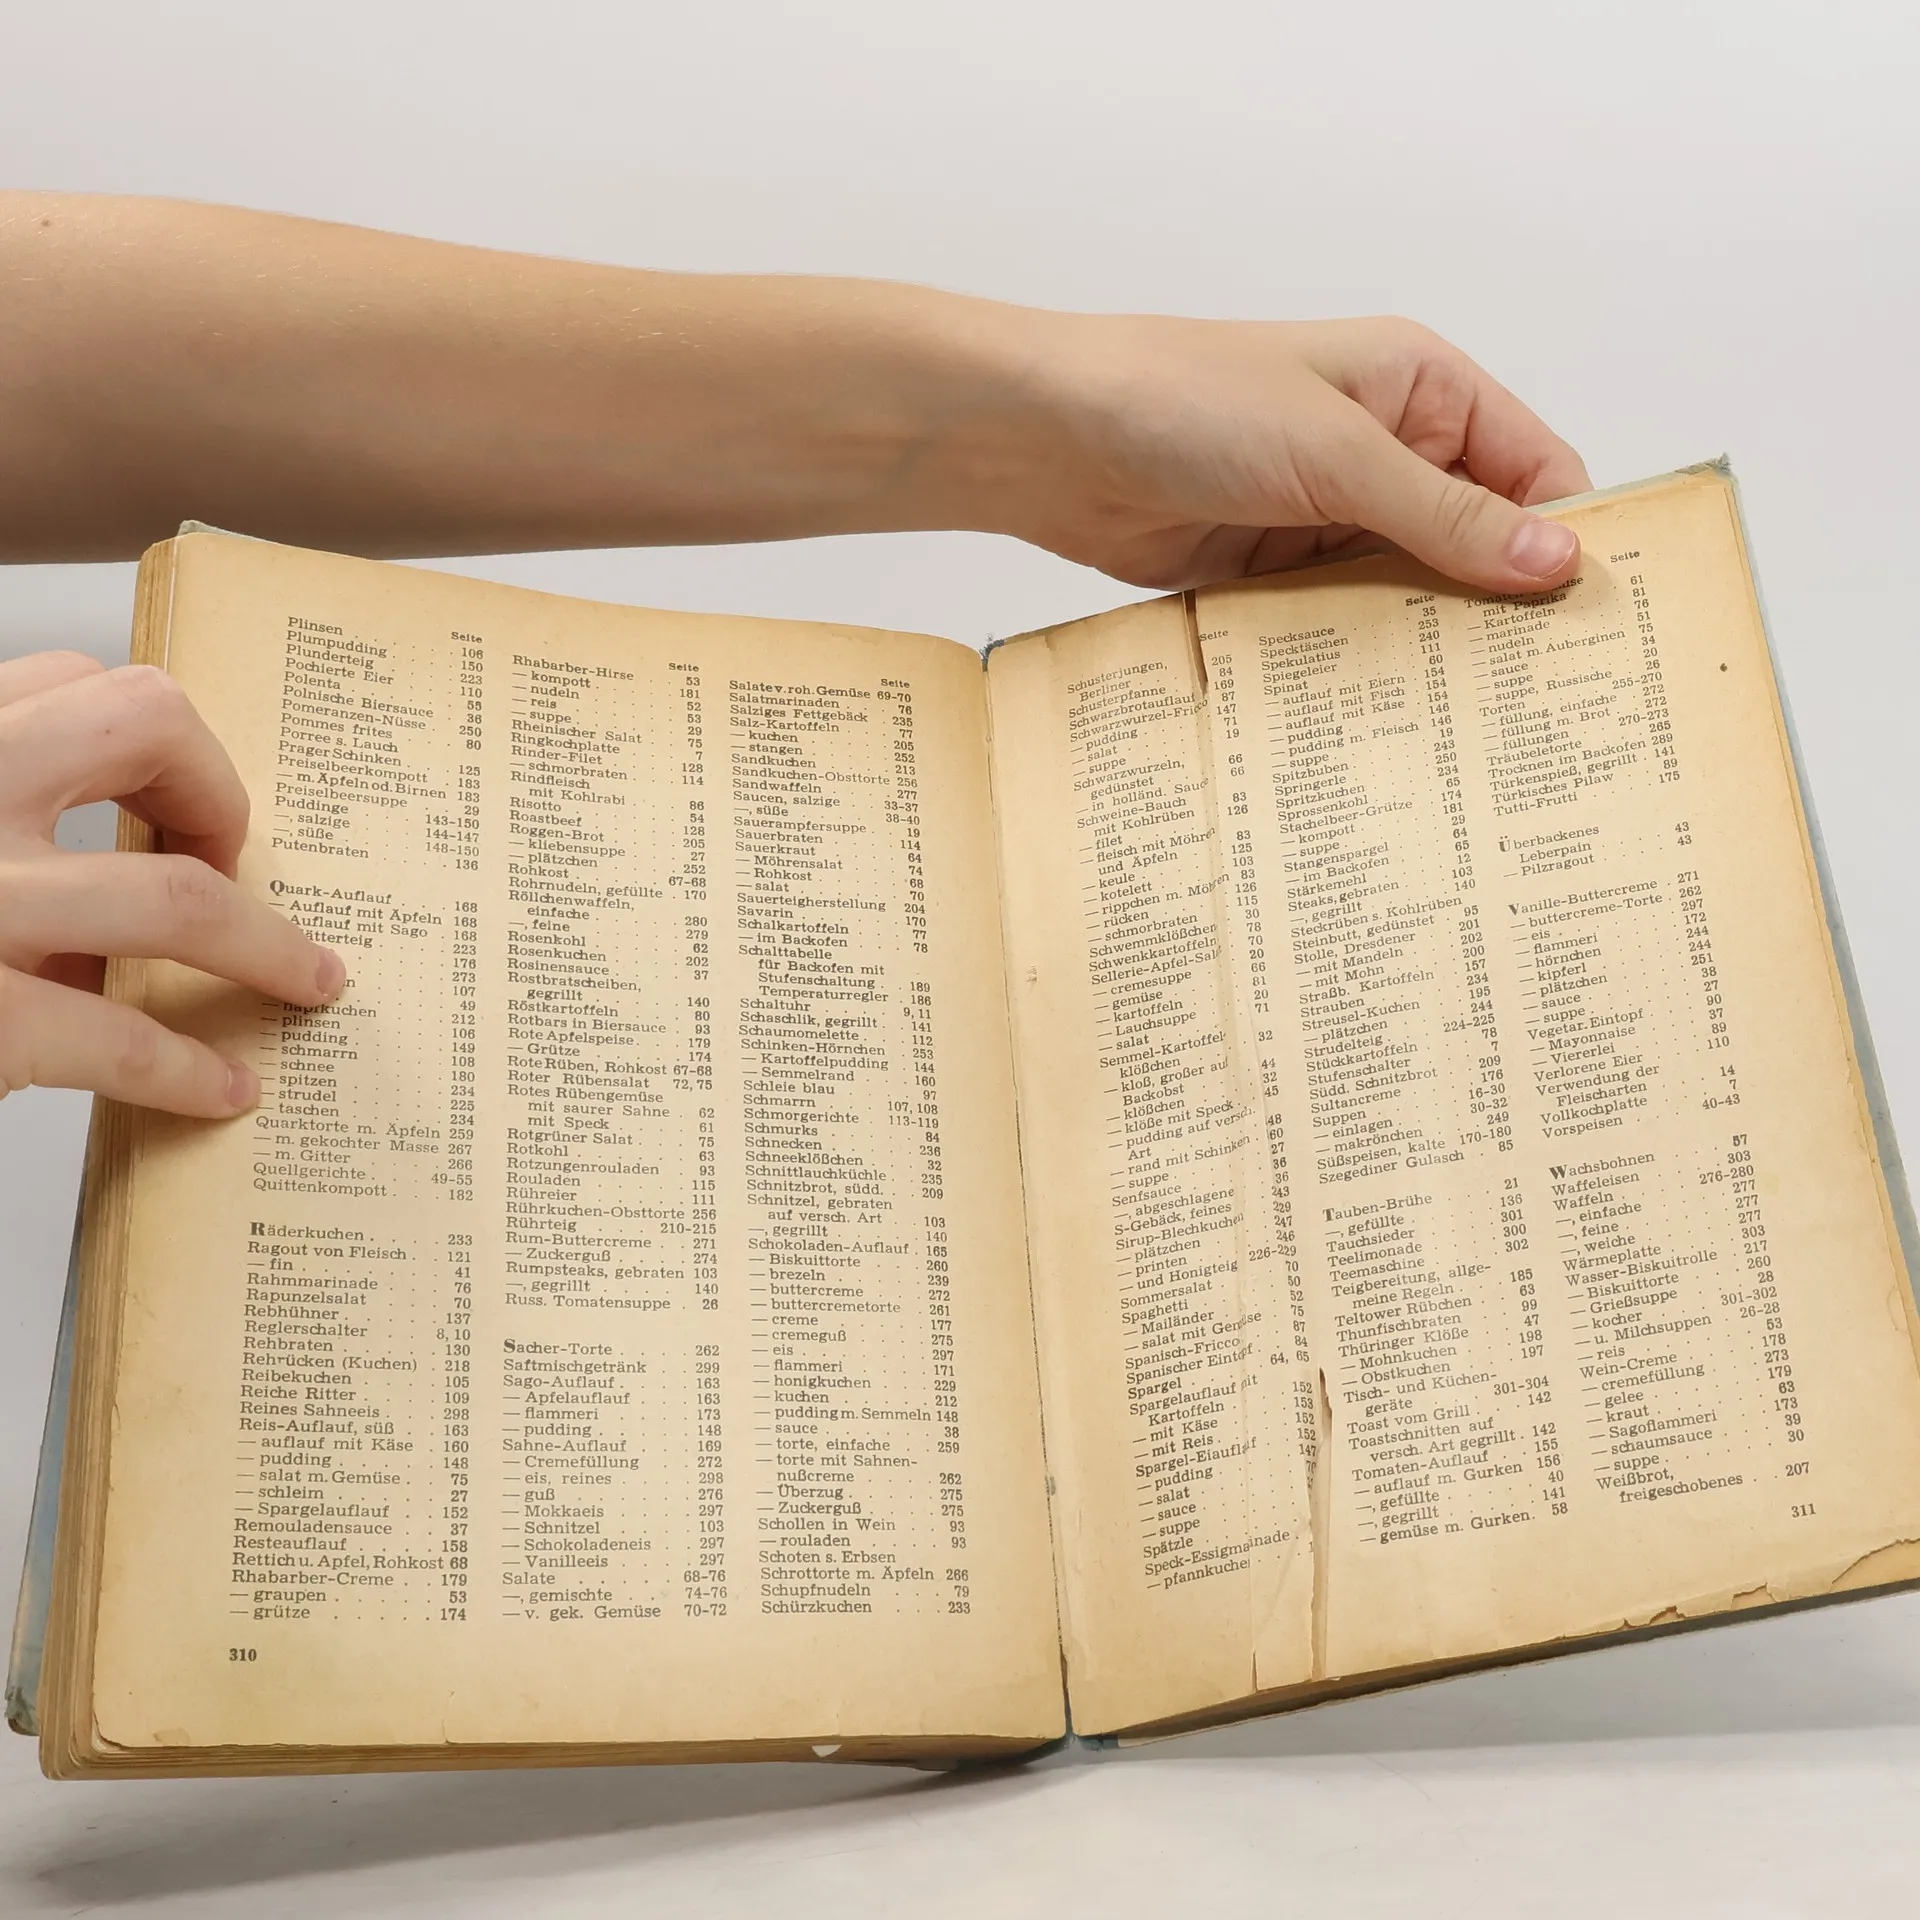 Seite
Plinsen . . . 106
Plumpudding . . . 150
Plunderteig . . . 223
Pochierte Eier . . . 110
Polenta . . . 55
Polnische Biersauce . 36
Pomeranzen-Nüsse . 250
Pommes frites . . . 80
Porree s. Lauch
Prager Schinken . . . 125
Preiselbeerkompott . 183
— m. Äpfeln od. Birnen 183
Preiselbeersuppe . . 29
Puddinge . . . 143-150
—, salzige . . . 144-147
—, süße . . . 148-150
Putenbraten . . . 136
Quark-Auflauf . . . 168
— Auflauf mit Äpfeln 168
Auflauf mit Sago . 168
ätterteig . . . 223
176
273
107
49
— napfkuchen . . . 212
— plinsen . . . 106
— pudding . . . 149
— schmarrn . . . 108
— schnee . . . 180
— spitzen . . . 234
— strudel . . . 225
— taschen . . . 234
Quarktorte m. Äpfeln 259
— m. gekochter Masse 267
— m. Gitter . . . 266
Quellgerichte . . . 49-55
Quittenkompott . . . 182
Räderkuchen . . . 233
Ragout von Fleisch . . 121
— fin . . . 41
Rahmmarinade . . . 76
Rapunzelsalat . . . 70
Rebhühner . . . 137
Reglerschalter . . . 8, 10
Rehbraten . . . 130
Rehrücken (Kuchen) . 218
Reibekuchen . . . 105
Reiche Ritter . . . 109
Reines Sahneeis . . . 298
Reis-Auflauf, süß . . 163
— auflauf mit Käse . 160
— pudding . . . 148
— salat m. Gemüse . . 75
— schleim . . . 27
— Spargelauflauf . . 152
Remouladensauce . . 37
Resteauflauf . . . 158
Rettich u. Apfel, Rohkost 68
Rhabarber-Creme . . 179
— graupen . . . 53
— grütze . . . 174
Seite
Rhabarber-Hirse . . 53
— kompott . . . 181
— nudeln . . . 52
— reis . . . 53
— suppe . . . 29
Rheinischer Salat . . 75
Ringkochplatte . . . 7
Rinder-Filet . . . 128
— schmorbraten . . 114
Rindfleisch
mit Kohlrabi . . . 86
Risotto . . . 54
Roastbeef . . . 128
Roggen-Brot . . . 205
— kliebensuppe . . . 27
— plätzchen . . . 252
Rohkost . . . 67-68
Rohrnudeln, gefüllte . 170
Röllchenwaffeln,
einfache . . . 280
—, feine . . . 279
Rosenkohl . . . 62
Rosenkuchen . . . 202
Rosinensauce . . . 37
Rostbratscheiben,
gegrillt . . . 140
Röstkartoffeln . . . 80
Rotbars in Biersauce . 93
Rote Apfelspeise . . . 179
— Grütze . . . 174
Rote Rüben, Rohkost 67-68
Roter Rübensalat 72, 75
Rotes Rübengemüse
mit saurer Sahne . 62
mit Speck . . . 61
Rotgrüner Salat . . . 75
Rotkohl . . . 63
Rotzungenrouladen . 93
Rouladen . . . 115
Rühreier . . . 111
Rührkuchen-Obsttorte 256
Rührteig . . . 210-215
Rum-Buttercreme . . 271
— Zuckerguß . . . 274
Rumpsteaks, gebraten 103
—, gegrillt . . . 140
Russ. Tomatensuppe . 26
Sacher-Torte . . . 262
Saftmischgetränk . . 299
Sago-Auflauf . . . 163
— Apfelauflauf . . . 163
— flammeri . . . 173
— pudding . . . 148
Sahne-Auflauf . . . 169
— Cremefüllung . . . 272
— eis, reines . . . 298
— guß . . . 276
— Mokkaeis . . . 297
— Schnitzel . . . 103
— Schokoladeneis . . 297
— Vanilleeis . . . 297
Salate . . . 68-76
—, gemischte . . . 74-76
— v. gek. Gemüse 70-72
Seite
Salate v. roh. Gemüse 69-70
Salatmarinaden . . . 76
Salziges Fettgebäck . 235
Salz-Kartoffeln . . . 77
— kuchen . . . 205
— stangen . . . 252
Sandkuchen . . . 213
Sandkuchen-Obsttorte 256
Sandwaffeln . . . 277
Saucen, salzige . . 33-37
—, süße . . . 38-40
Sauerampfersuppe . . 19
Sauerbraten . . . 114
Sauerkraut . . . 64
— Möhrensalat . . . 74
— Rohkost . . . 68
— salat . . . 70
Sauerteigherstellung . 204
Savarin . . . 170
Schalkartoffeln . . . 77
— im Backofen . . . 78
Schalttabelle
für Backofen mit
Stufenschaltung . . 189
Temperaturregler . 186
Schaltuhr . . . 9, 11
Schaschlik, gegrillt . . 141
Schaumomelette . . . 112
Schinken-Hörnchen . 253
— Kartoffelpudding . 144
— Semmelrand . . . 160
Schleie blau . . . 97
Schmarrn . . . 107, 108
Schmorgerichte . 113-119
Schmurks . . . 84
Schnecken . . . 236
Schneeklößchen . . . 32
Schnittlauchküchle . . 235
Schnitzbrot, südd. . . 209
Schnitzel, gebraten
auf versch. Art . . 103
—, gegrillt . . . 140
Schokoladen-Auflauf . 165
— Biskuittorte . . . 260
— brezeln . . . 239
— buttercreme . . . 272
— buttercremetorte . 261
— creme . . . 177
— cremeguß . . . 275
— eis . . . 297
— flammeri . . . 171
— honigkuchen . . . 229
— kuchen . . . 212
— pudding m. Semmeln 148
— sauce . . . 38
— torte, einfache . . 259
— torte mit Sahnen-
nußcreme . . . 262
— Überzug . . . 275
— Zuckerguß . . . 275
Schollen in Wein . . 93
— rouladen . . . 93
Schoten s. Erbsen
Schrottorte m. Äpfeln 266
Schupfnudeln . . . 79
Schürzkuchen . . . 233
310
Seite
Schusterjungen,
Berliner . . . 205
Schusterpfanne . . . 84
Schwarzbrotauflauf 169
Schwarzwurzel-Fricco 87
— pudding . . . 147
— salat . . . 71
— suppe . . . 19
Schwarzwurzeln,
gedünstet . . . 66
— in holländ. Sauce 66
Schweine-Bauch
mit Kohlrüben . . 83
— filet . . . 126
— fleisch mit Möhren
und Äpfeln . . . 83
— keule . . . 125
— kotelett . . . 103
— rippchen m. Möhren 83
— rücken . . . 126
— schmorbraten . . 115
Schwemmklößchen . 30
Schwenkkartoffeln . 78
Sellerie-Apfel-Salat 70
— cremesuppe . . . 20
— gemüse . . . 66
— kartoffeln . . . 81
— Lauchsuppe . . . 20
— salat . . . 71
Semmel-Kartoffel-
klößchen . . . 32
— kloß, großer auf
Backobst . . . 44
— klößchen . . . 32
— klöße mit Speck . . 45
— pudding auf versch.
Art . . . 48
— rand mit Schinken . 60
— suppe . . . 27
Senfsauce . . . 36
—, abgeschlagene . . 36
S-Gebäck, feines . . 243
Sirup-Blechkuchen . 229
— plätzchen . . . 247
— printen . . . 246
— und Honigteig 226-229
Sommersalat . . . 70
Spaghetti . . . 50
— Mailänder . . . 52
— salat mit Gemüse . 75
Spanisch-Fricco . . . 87
Spanischer Eintopf . . 84
Spargel . . . 64, 65
Spargelauflauf mit
Kartoffeln . . . 152
— mit Käse . . . 153
— mit Reis . . . 152
Spargel-Eiauflauf . . 152
— pudding . . . 147
— salat . . .
— sauce . . .
— suppe . . .
Spätzle . . .
Speck-Essigmarinade .
— pfannkuchen . . .
Seite
Specksauce . . . 35
Specktäschen . . . 253
Spekulatius . . . 240
Spiegeleier . . . 111
Spinat . . . 60
— auflauf mit Eiern . 154
— auflauf mit Fisch . 154
— auflauf mit Käse . 154
— pudding . . . 146
— pudding m. Fleisch 146
— suppe . . . 19
Spitzbuben . . . 243
Springerle . . . 250
Spritzkuchen . . . 234
Sprossenkohl . . . 65
Stachelbeer-Grütze . 174
— kompott . . . 181
— suppe . . . 29
Stangenspargel . . . 64
— im Backofen . . . 65
Stärkemehl . . . 12
Steaks, gebraten . . 103
—, gegrillt . . . 140
Steckrüben s. Kohlrüben
Steinbutt, gedünstet . 95
Stolle, Dresdener . . 201
— mit Mandeln . . . 202
— mit Mohn . . . 200
Straßb. Kartoffeln . 157
Strauben . . . 234
Streusel-Kuchen . . 195
— plätzchen . . . 244
Strudelteig . . . 224-225
Stückkartoffeln . . . 78
Stufenschalter . . . 7
Südd. Schnitzbrot . . 209
Sultancreme . . . 176
Suppen . . . 16-30
— einlagen . . . 30-32
— makrönchen . . . 249
Süßspeisen, kalte 170-180
Szegediner Gulasch . 85
Tauben-Brühe . . . 21
—, gefüllte . . . 136
Tauchsieder . . . 301
Teelimonade . . . 300
Teemaschine . . . 302
Teigbereitung, allge-
meine Regeln . . . 185
Teltower Rübchen . . 63
Thunfischbraten . . 99
Thüringer Klöße . . 47
— Mohnkuchen . . . 198
— Obstkuchen . . . 197
Tisch- und Küchen-
geräte . . . 301-304
Toast vom Grill . . . 142
Toastschnitten auf
versch. Art gegrillt . 142
Tomaten-Auflauf . . 155
— auflauf m. Gurken 156
—, gefüllte . . . 40
—, gegrillt . . . 141
— gemüse m. Gurken . 58
Seite
mit Paprika . . . 61
— Kartoffeln . . . 81
— marinade . . . 76
— nudeln . . . 51
— salat m. Auberginen 75
— sauce . . . 34
— suppe . . . 20
— suppe, Russische . 26
Torten . . . 255-270
— füllung, einfache . 272
— füllung m. Brot . . 272
— füllungen . . 270-273
Träubeletorte . . . 265
Trocknen im Backofen 289
Türkenspieß, gegrillt . 141
Türkisches Pilaw . . 89
Tutti-Frutti . . . 175
Überbackenes
Leberpain . . . 43
— Pilzragout . . . 43
Vanille-Buttercreme . 271
— buttercreme-Torte . 262
— eis . . . 297
— flammeri . . . 172
— hörnchen . . . 244
— kipferl . . . 244
— plätzchen . . . 251
— sauce . . . 38
— suppe . . . 27
Vegetar. Eintopf . . 90
— Mayonnaise . . . 37
— Viererlei . . . 89
Verlorene Eier . . . 110
Verwendung der
Fleischarten . . . 14
Vollkochplatte . . . 7
Vorspeisen . . . 40-43
Wachsbohnen . . . 57
Waffeleisen . . . 303
Waffeln . . . 276-280
—, einfache . . . 277
—, feine . . . 277
—, weiche . . . 277
Wärmeplatte . . . 303
Wasser-Biskuitrolle . 217
— Biskuittorte . . . 260
— Grießsuppe . . . 28
— kocher . . . 301-302
— u. Milchsuppen . 26-28
— reis . . . 53
Wein-Creme . . . 178
— cremefüllung . . . 273
— gelee . . . 179
— kraut . . . 63
— Sagoflammeri . . 173
— schaumsauce . . . 39
— suppe . . . 30
Weißbrot,
freigeschobenes . . 207
311